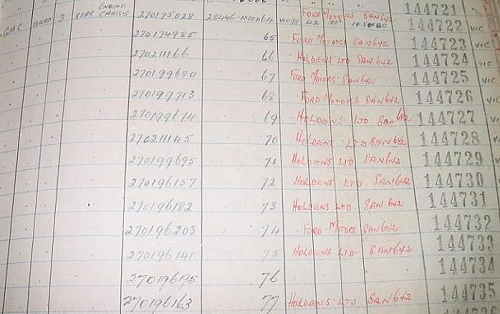 144721
GMC 3 REAR ENGINE CHASSIS 270175028 28446-M0006 64 FORD MOTORS SAN 642 144722 VIC
270174955 65 FORD MOTORS SAN 642 144723 VIC
270211166 66 HOLDENS LTD SAN 642 144724 VIC
270199680 67 FORD MOTORS SAN 642 144725 VIC
270199713 68 FORD MOTORS SAN 642 144726 VIC
270199674 69 HOLDENS LTD SAN 642 144727
270211145 70 HOLDENS LTD SAN 642 144728
270199695 71 HOLDENS LTD SAN 642 144729
270196157 72 HOLDENS LTD SAN 642 144730
270196182 73 HOLDENS LTD SAN 642 144731
270196203 74 FORD MOTORS SAN 642 144732
270196141 75 HOLDENS LTD SAN 643 144733
270196195 76 144734
270196163 77 HOLDENS LTD SAN 642 144735